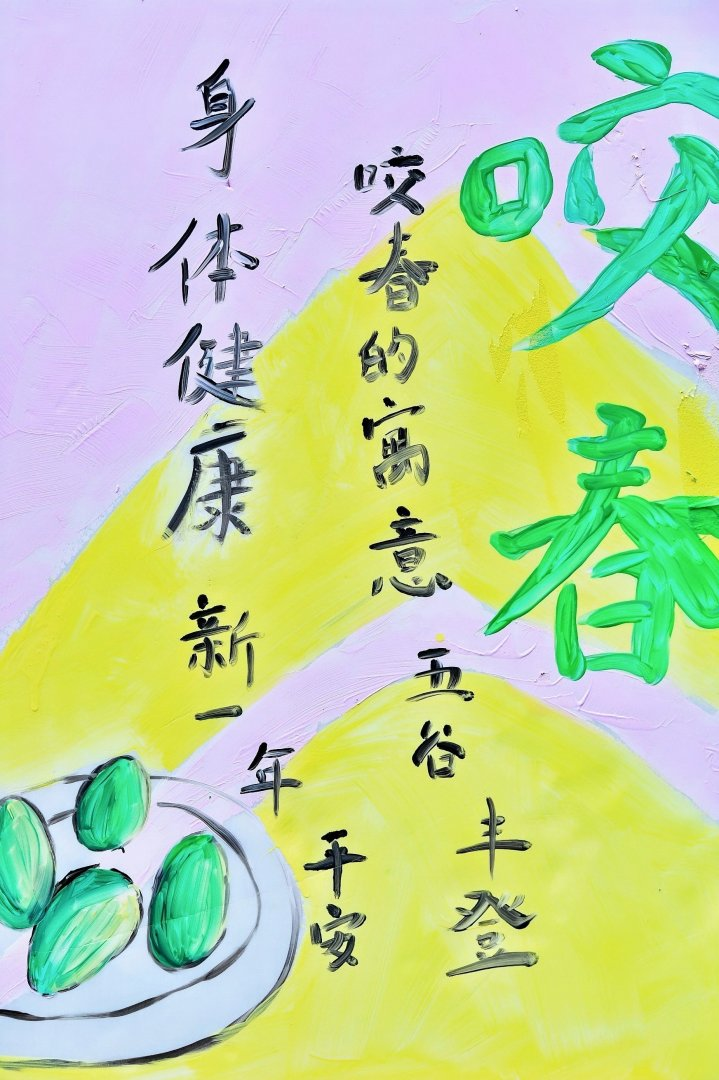 咬春
咬春的寓意
五谷丰登
身体健康
新一年
平安